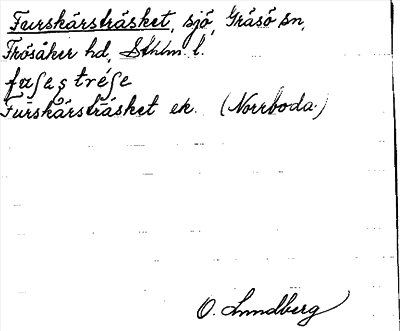 Furskärsträsket, sjö, Gräsö sn,
Frösåker hd, Sthlm. l.
Furskärsträsket ek. (Norrboda.)
O. Lundberg